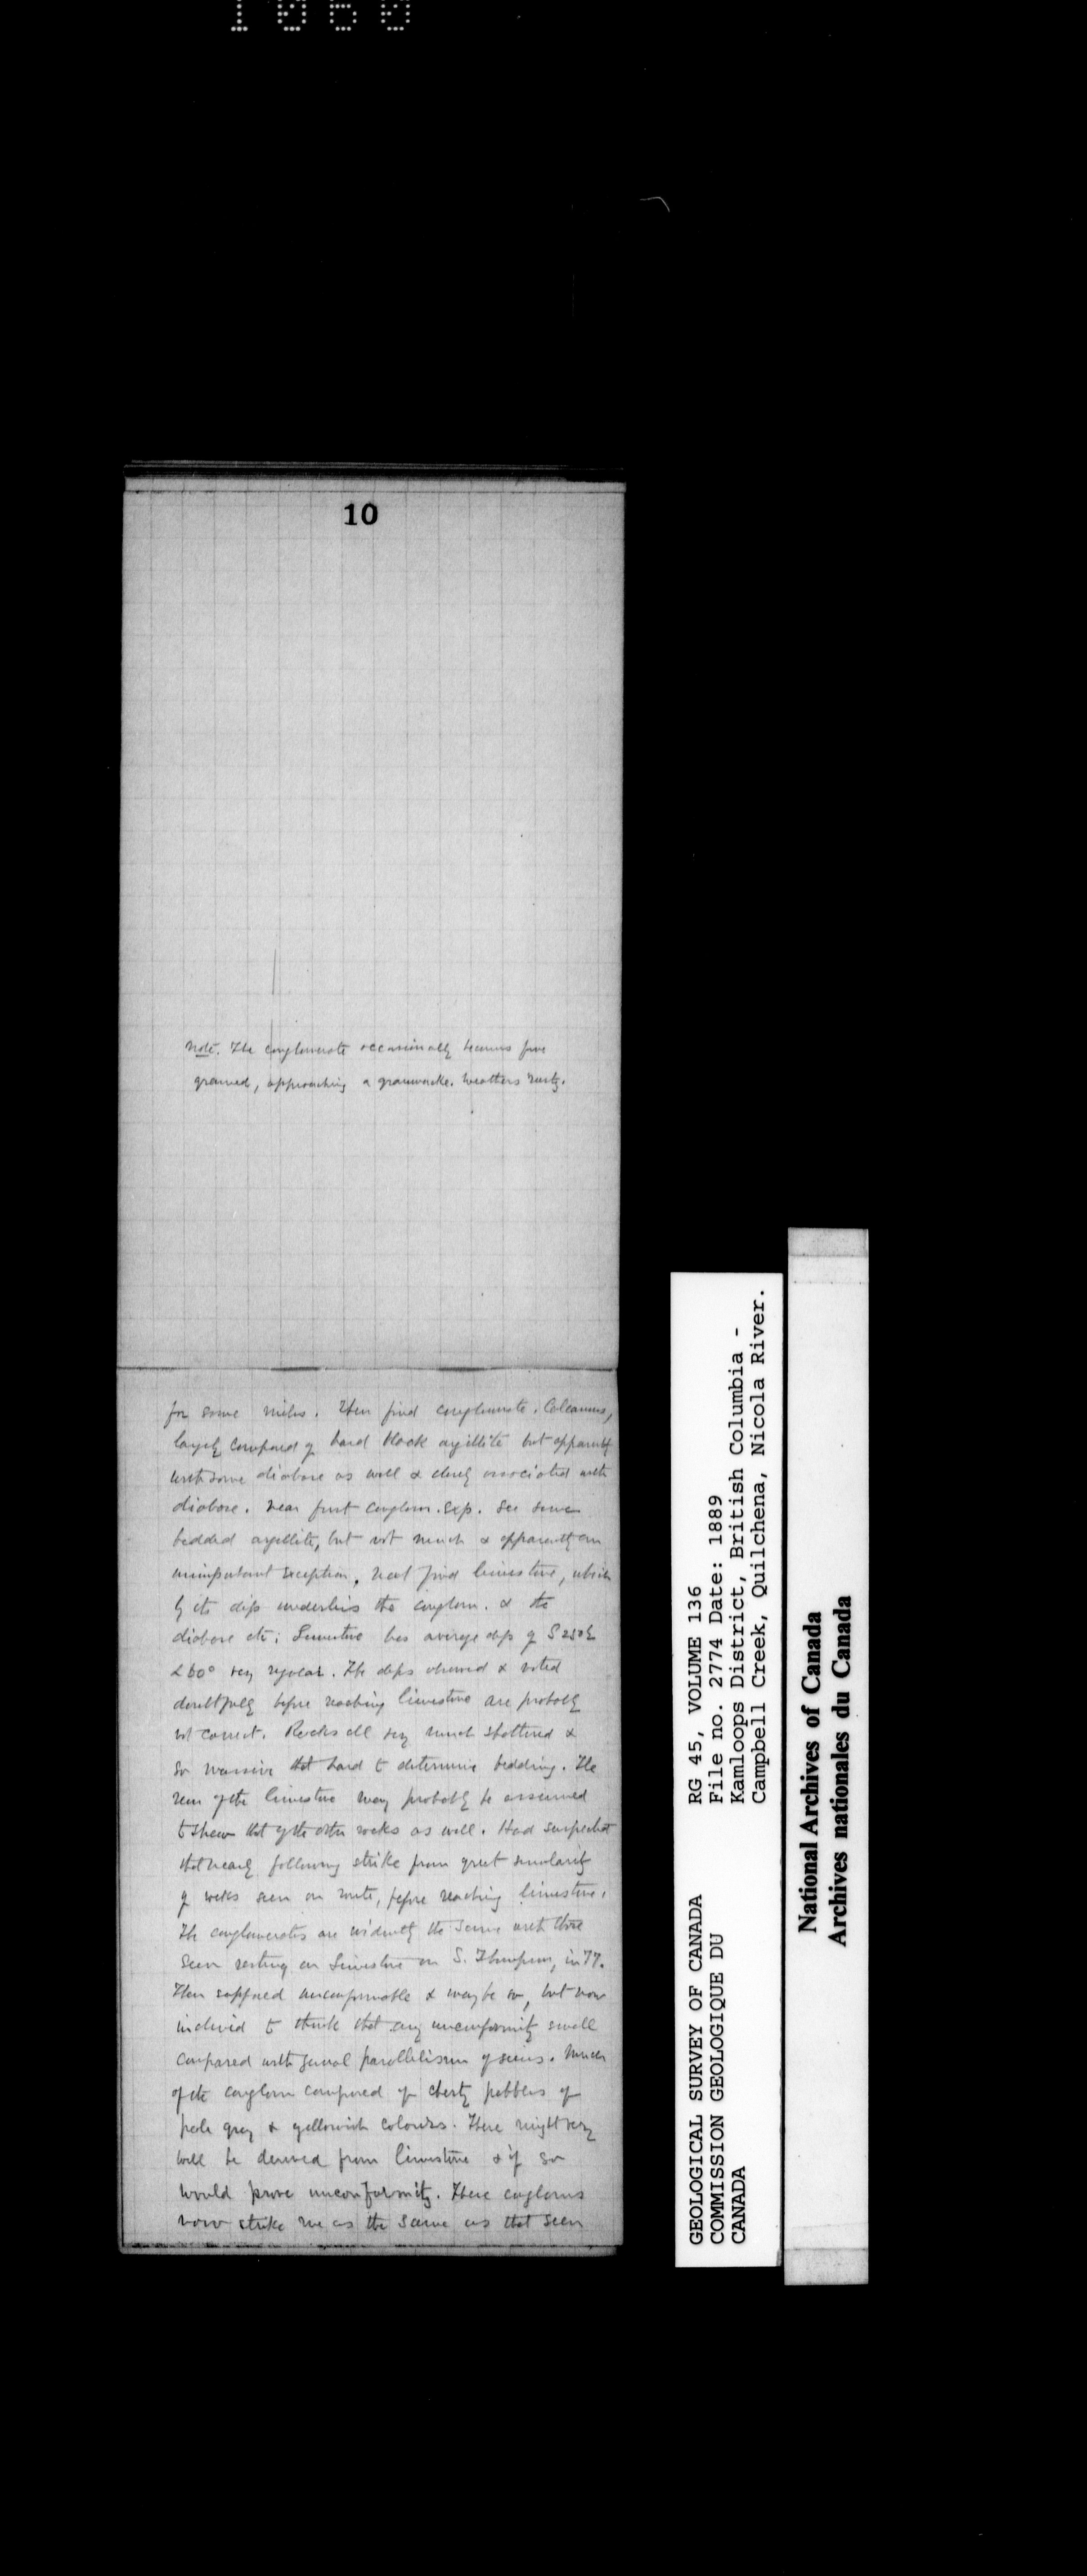 1060
10
Note. The conglomerate occasionally becomes fine
grained, approaching a grauwacke. Weathers rusty.
for some miles. Then find conglomerate. Calcareous,
largely composed of hard black argillite but apparently
with some diabase as well & closely associated with
diabase. Near first conglom. exp. see some
bedded argillite, but not much & apparently an
unimportant exception. Next find limestone, which
by its dip underlies the conglom. & the
diabase etc; Limestone has average dip of S 25° E
< 60° very regular. The dips observed & noted
doubtfully before reaching limestone are probably
not correct. Rocks all very much shattered &
so massive that hard to determine bedding. The
run of the limestone may probably be assumed
to shew that of the other rocks as well. Had suspected
that nearly following strike from great similarity
of rocks seen on route, before reaching limestone.
The conglomerates are evidently the same with those
seen resting on limestone on S. Thompson, in 77.
Then supposed unconformable & may be so, but now
inclined to think that any unconformity small
compared with general parallelism of series. Much
of the conglom composed of cherty pebbles of
pale grey & yellowish colours. These might very
well be derived from limestone & if so
would prove unconformity. These congloms
now strike me as the same as that seen
GEOLOGICAL SURVEY OF CANADA
COMMISSION GEOLOGIQUE DU
CANADA
RG 45, VOLUME 136
File no. 2774 Date: 1889
Kamloops District, British Columbia -
Campbell Creek, Quilchena, Nicola River.
National Archives of Canada
Archives nationales du Canada